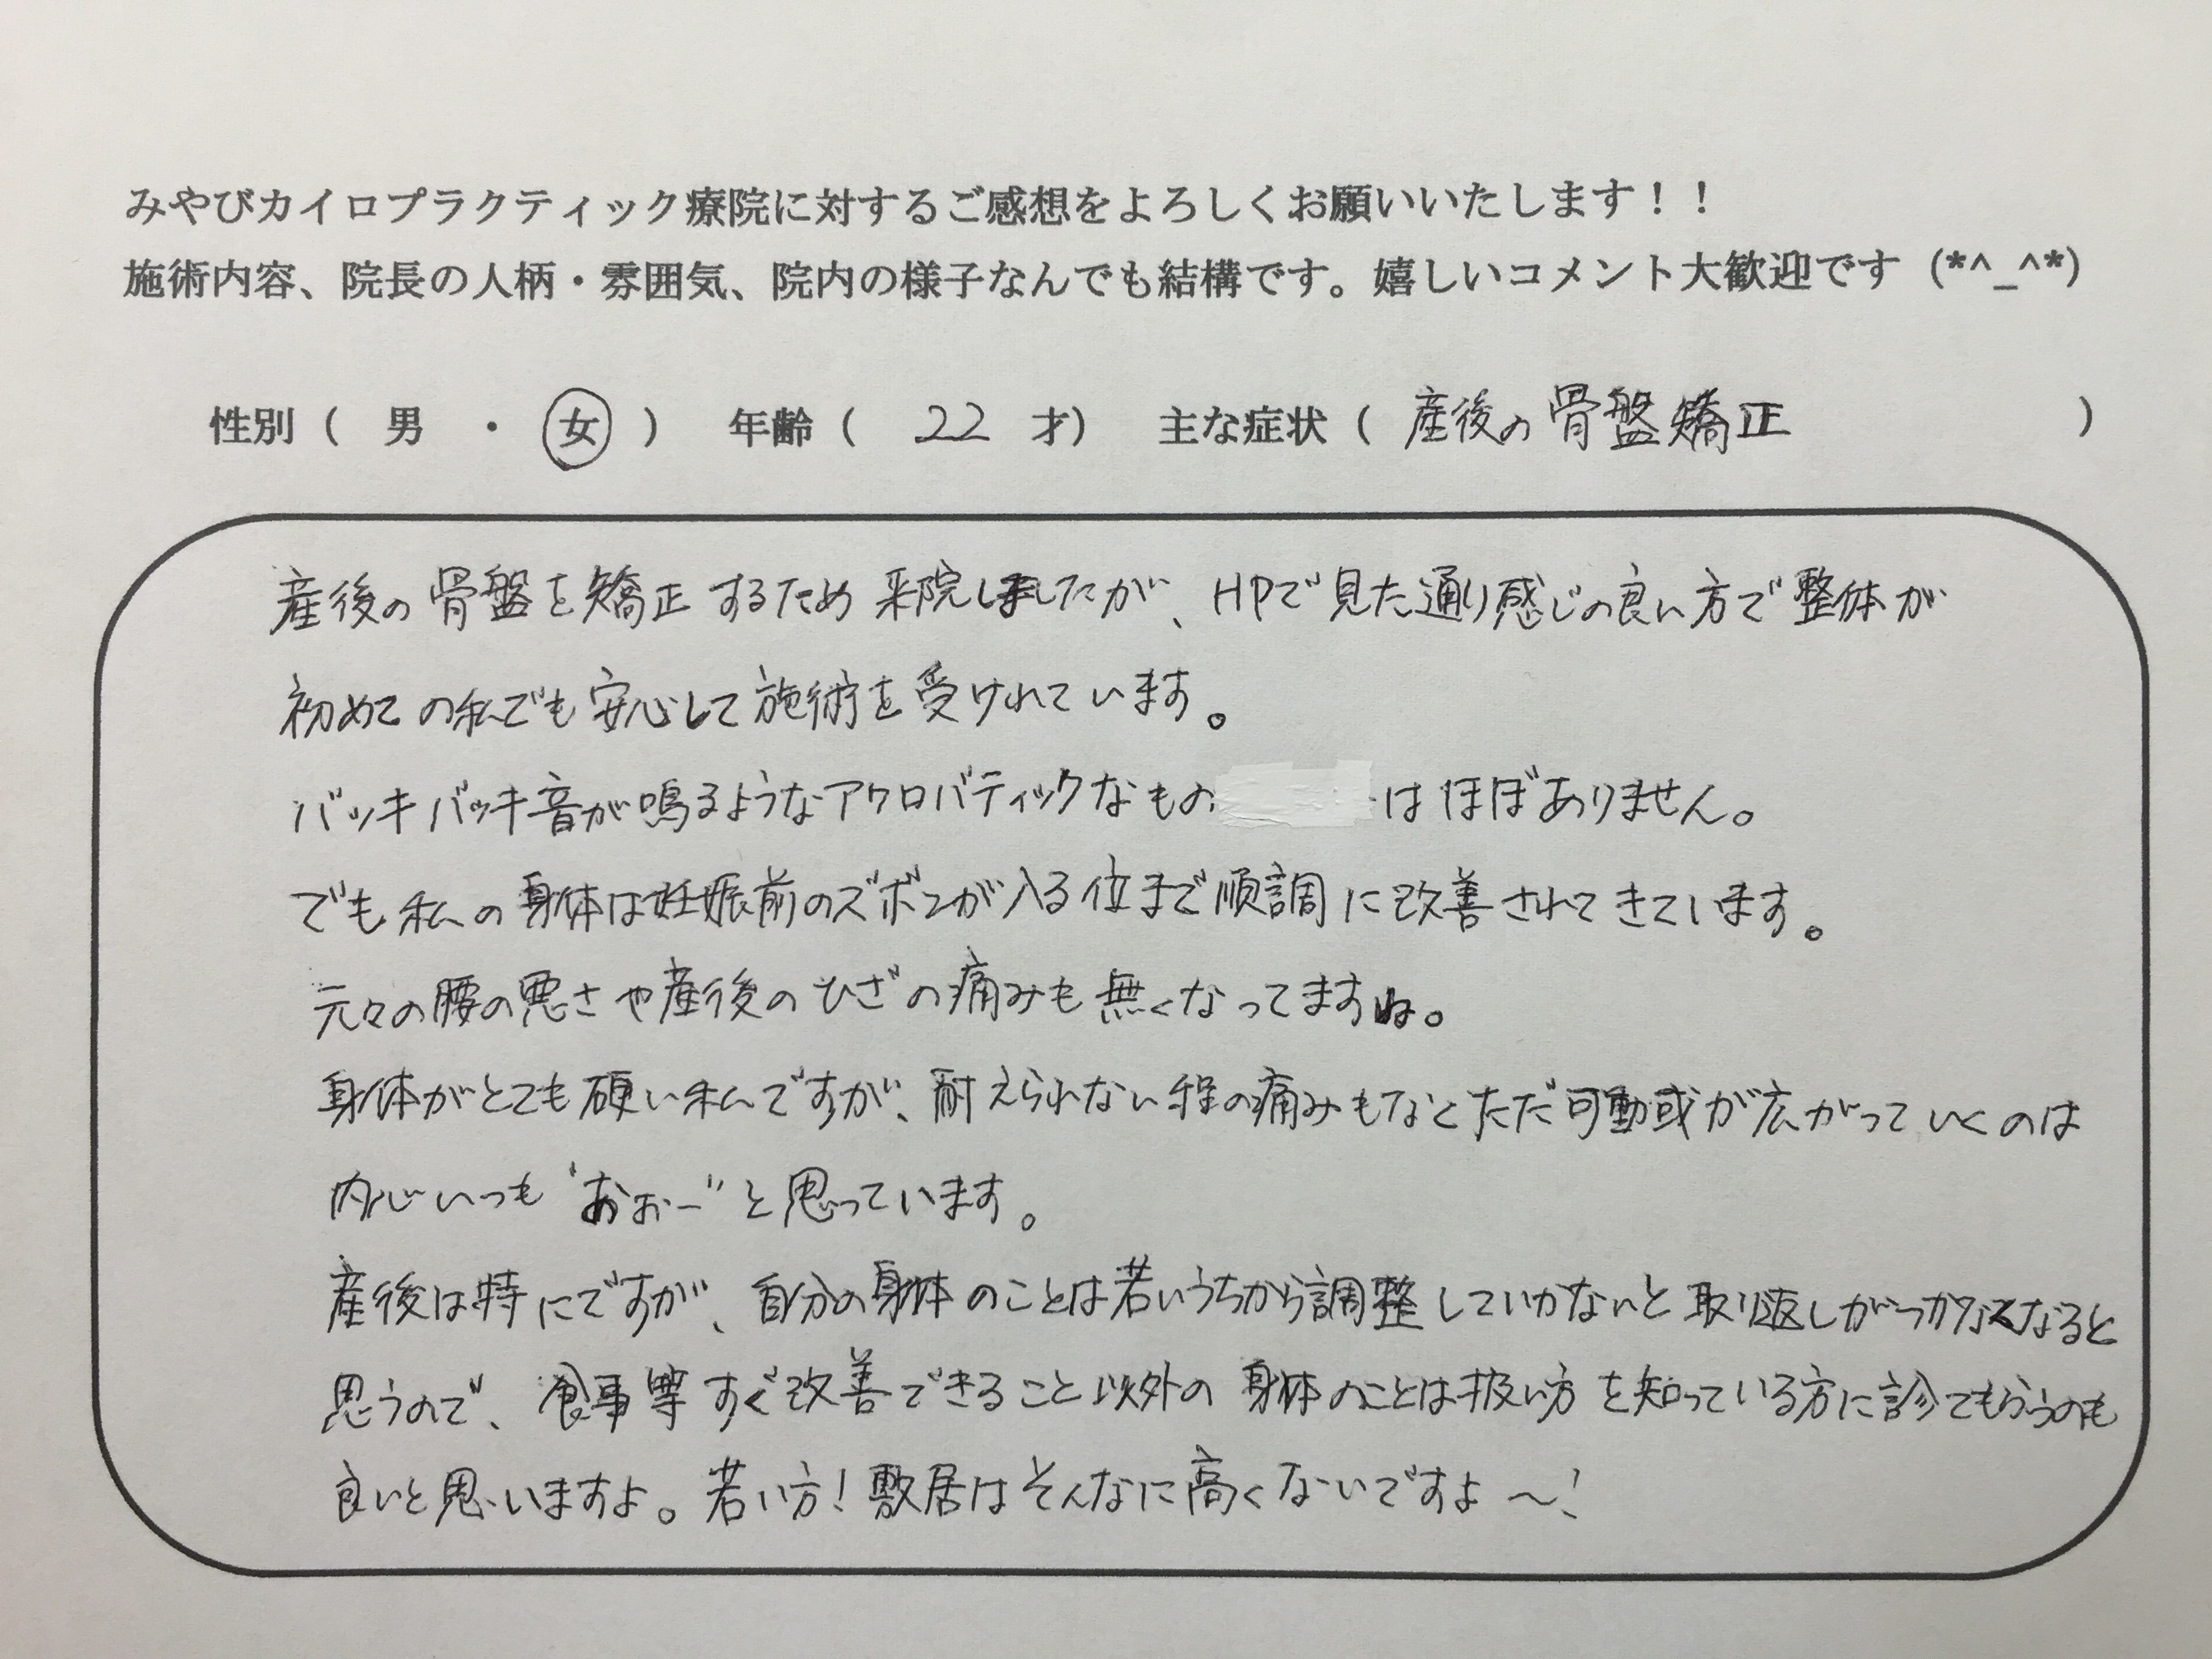 みやびカイロプラクティック療院に対するご感想をよろしくお願いいたします！！
施術内容、院長の人柄・雰囲気、院内の様子なんでも結構です。嬉しいコメント大歓迎です（*^_^*）
性別（ 男 ・ 女 ） 年齢（ 22 才） 主な症状（ 産後の骨盤矯正 ）
産後の骨盤を矯正するため来院しましたが、HPで見た通り感じの良い方で整体が
初めての私でも安心して施術を受けれています。
バッキバッキ音が鳴るようなアクロバティックなもの はほぼありません。
でも私の身体は妊娠前のズボンが入る位まで順調に改善されてきています。
元々の腰の悪さや産後のひざの痛みも無くなってますね。
身体がとても硬い私ですが、耐えられない程の痛みもなくただ可動或が広がっていくのは
内心いつも“おぉー”と思っています。
産後は特にですが、自分の身体のことは若いうちから調整していかないと取り返しがつかなくなると
思うので、食事等すぐ改善できること以外の身体のことは扱い方を知っている方に診てもらうのも
良いと思いますよ。若い方！敷居はそんなに高くないですよ～！